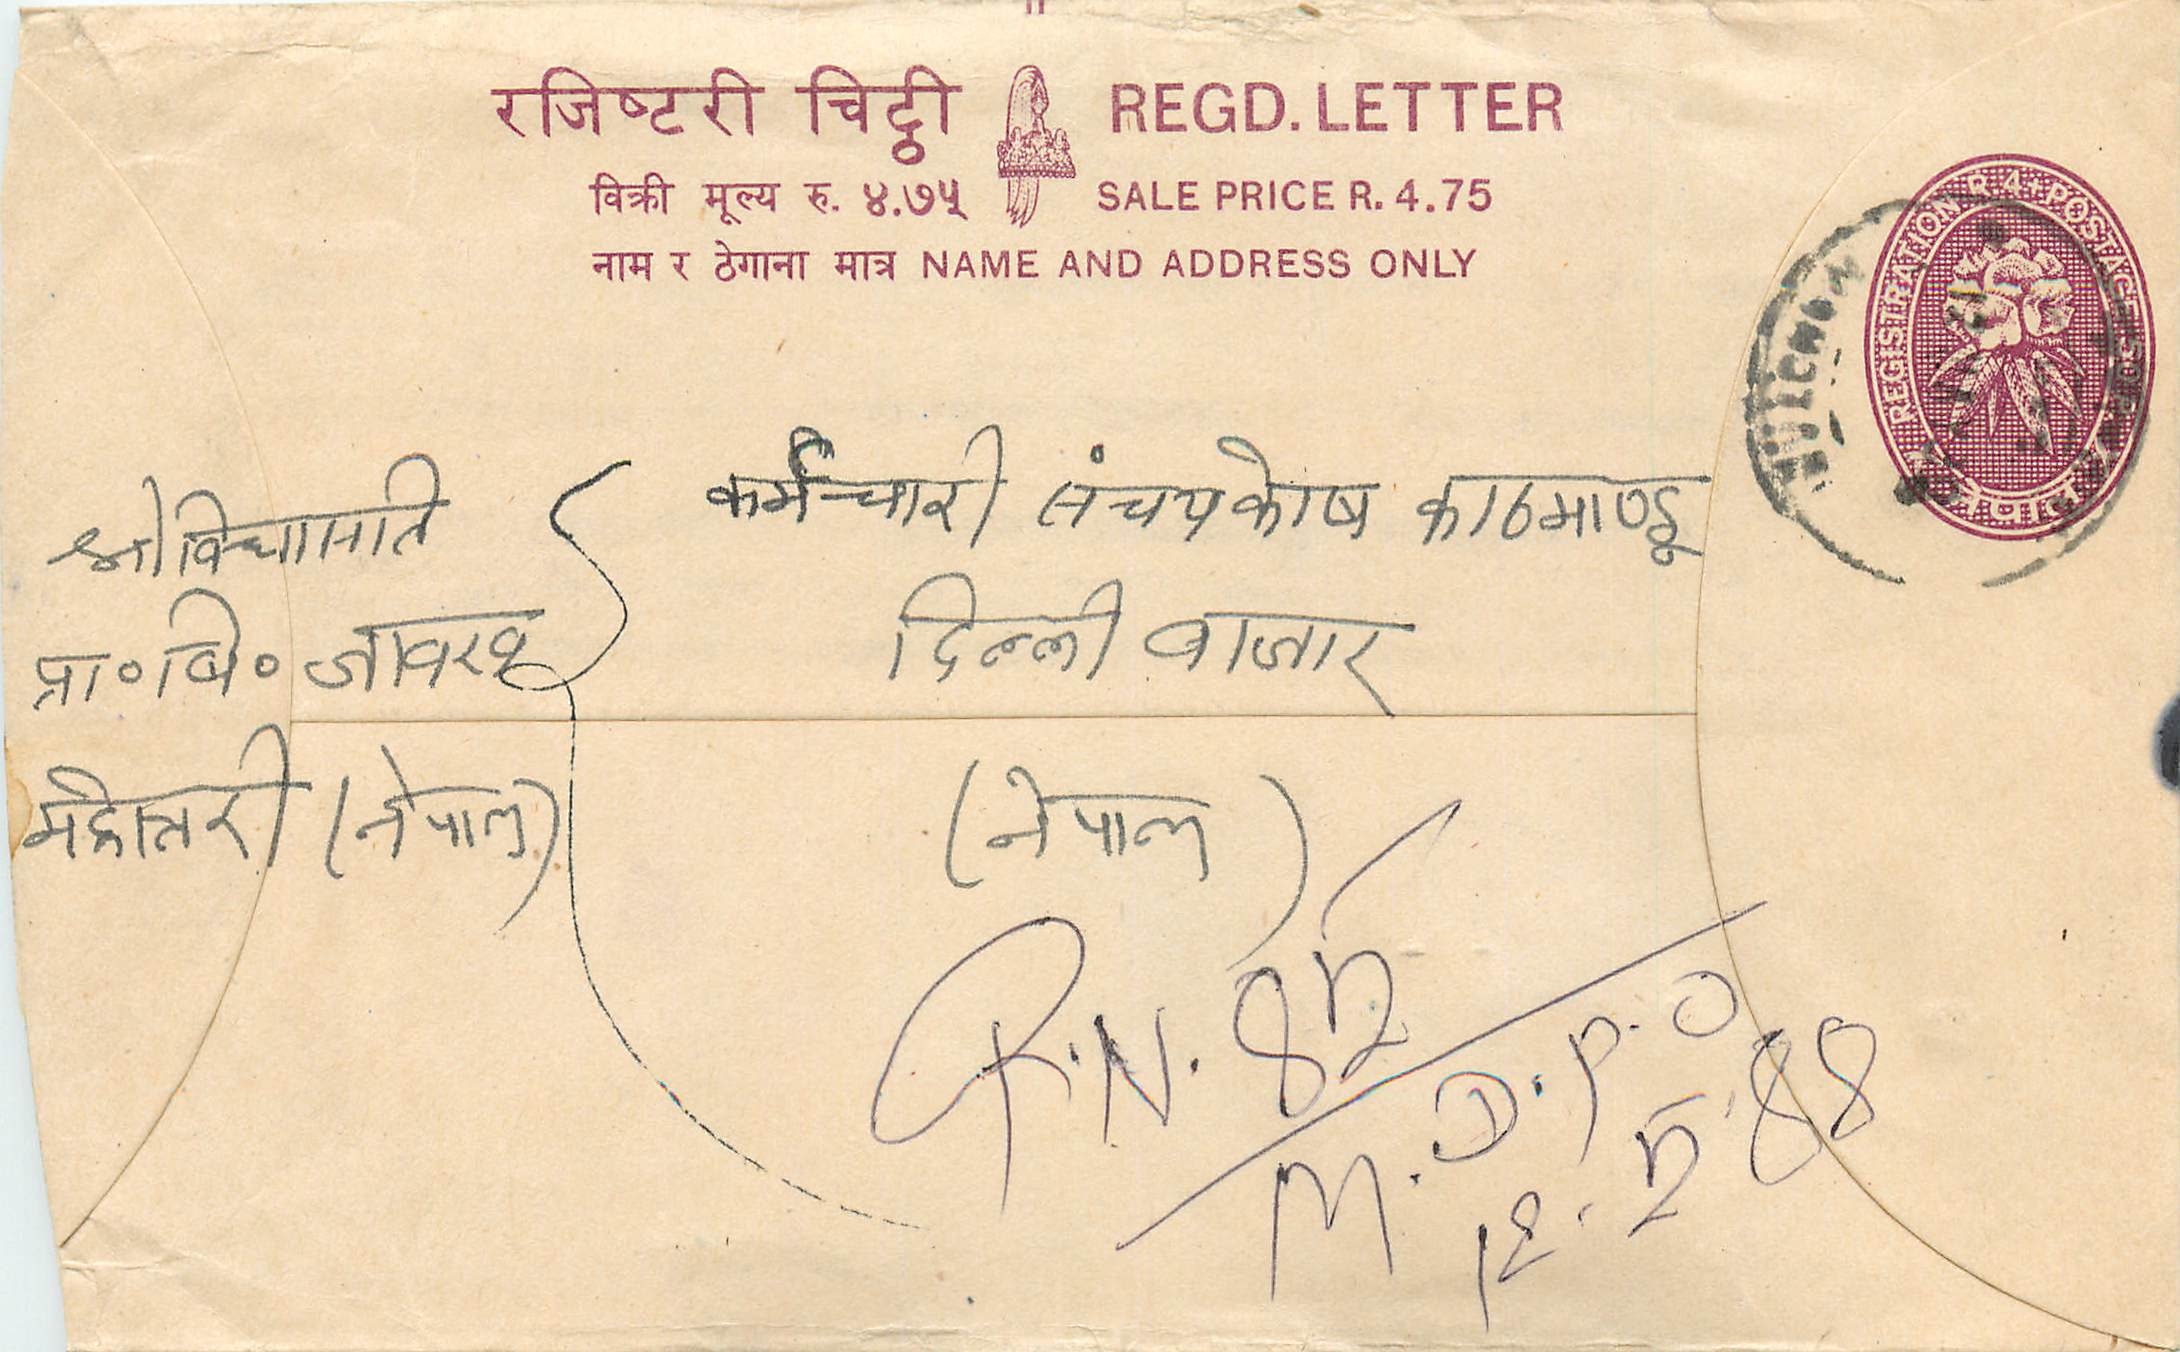 रजिष्टरी चिट्ठी REGD. LETTER
विक्री मूल्य रु. ४.७५ SALE PRICE R. 4.75
नाम र ठेगाना मात्र NAME AND ADDRESS ONLY
REGISTRATION R 4 + POSTAGE
नेपाल
कर्मचारी संचयकोष काठमाण्डू
दिल्ली बाजार
(नेपाल)
श्री
प्रा०वि०
महोत्तरी (नेपाल)
R.N. 85
M.D.P.O
88